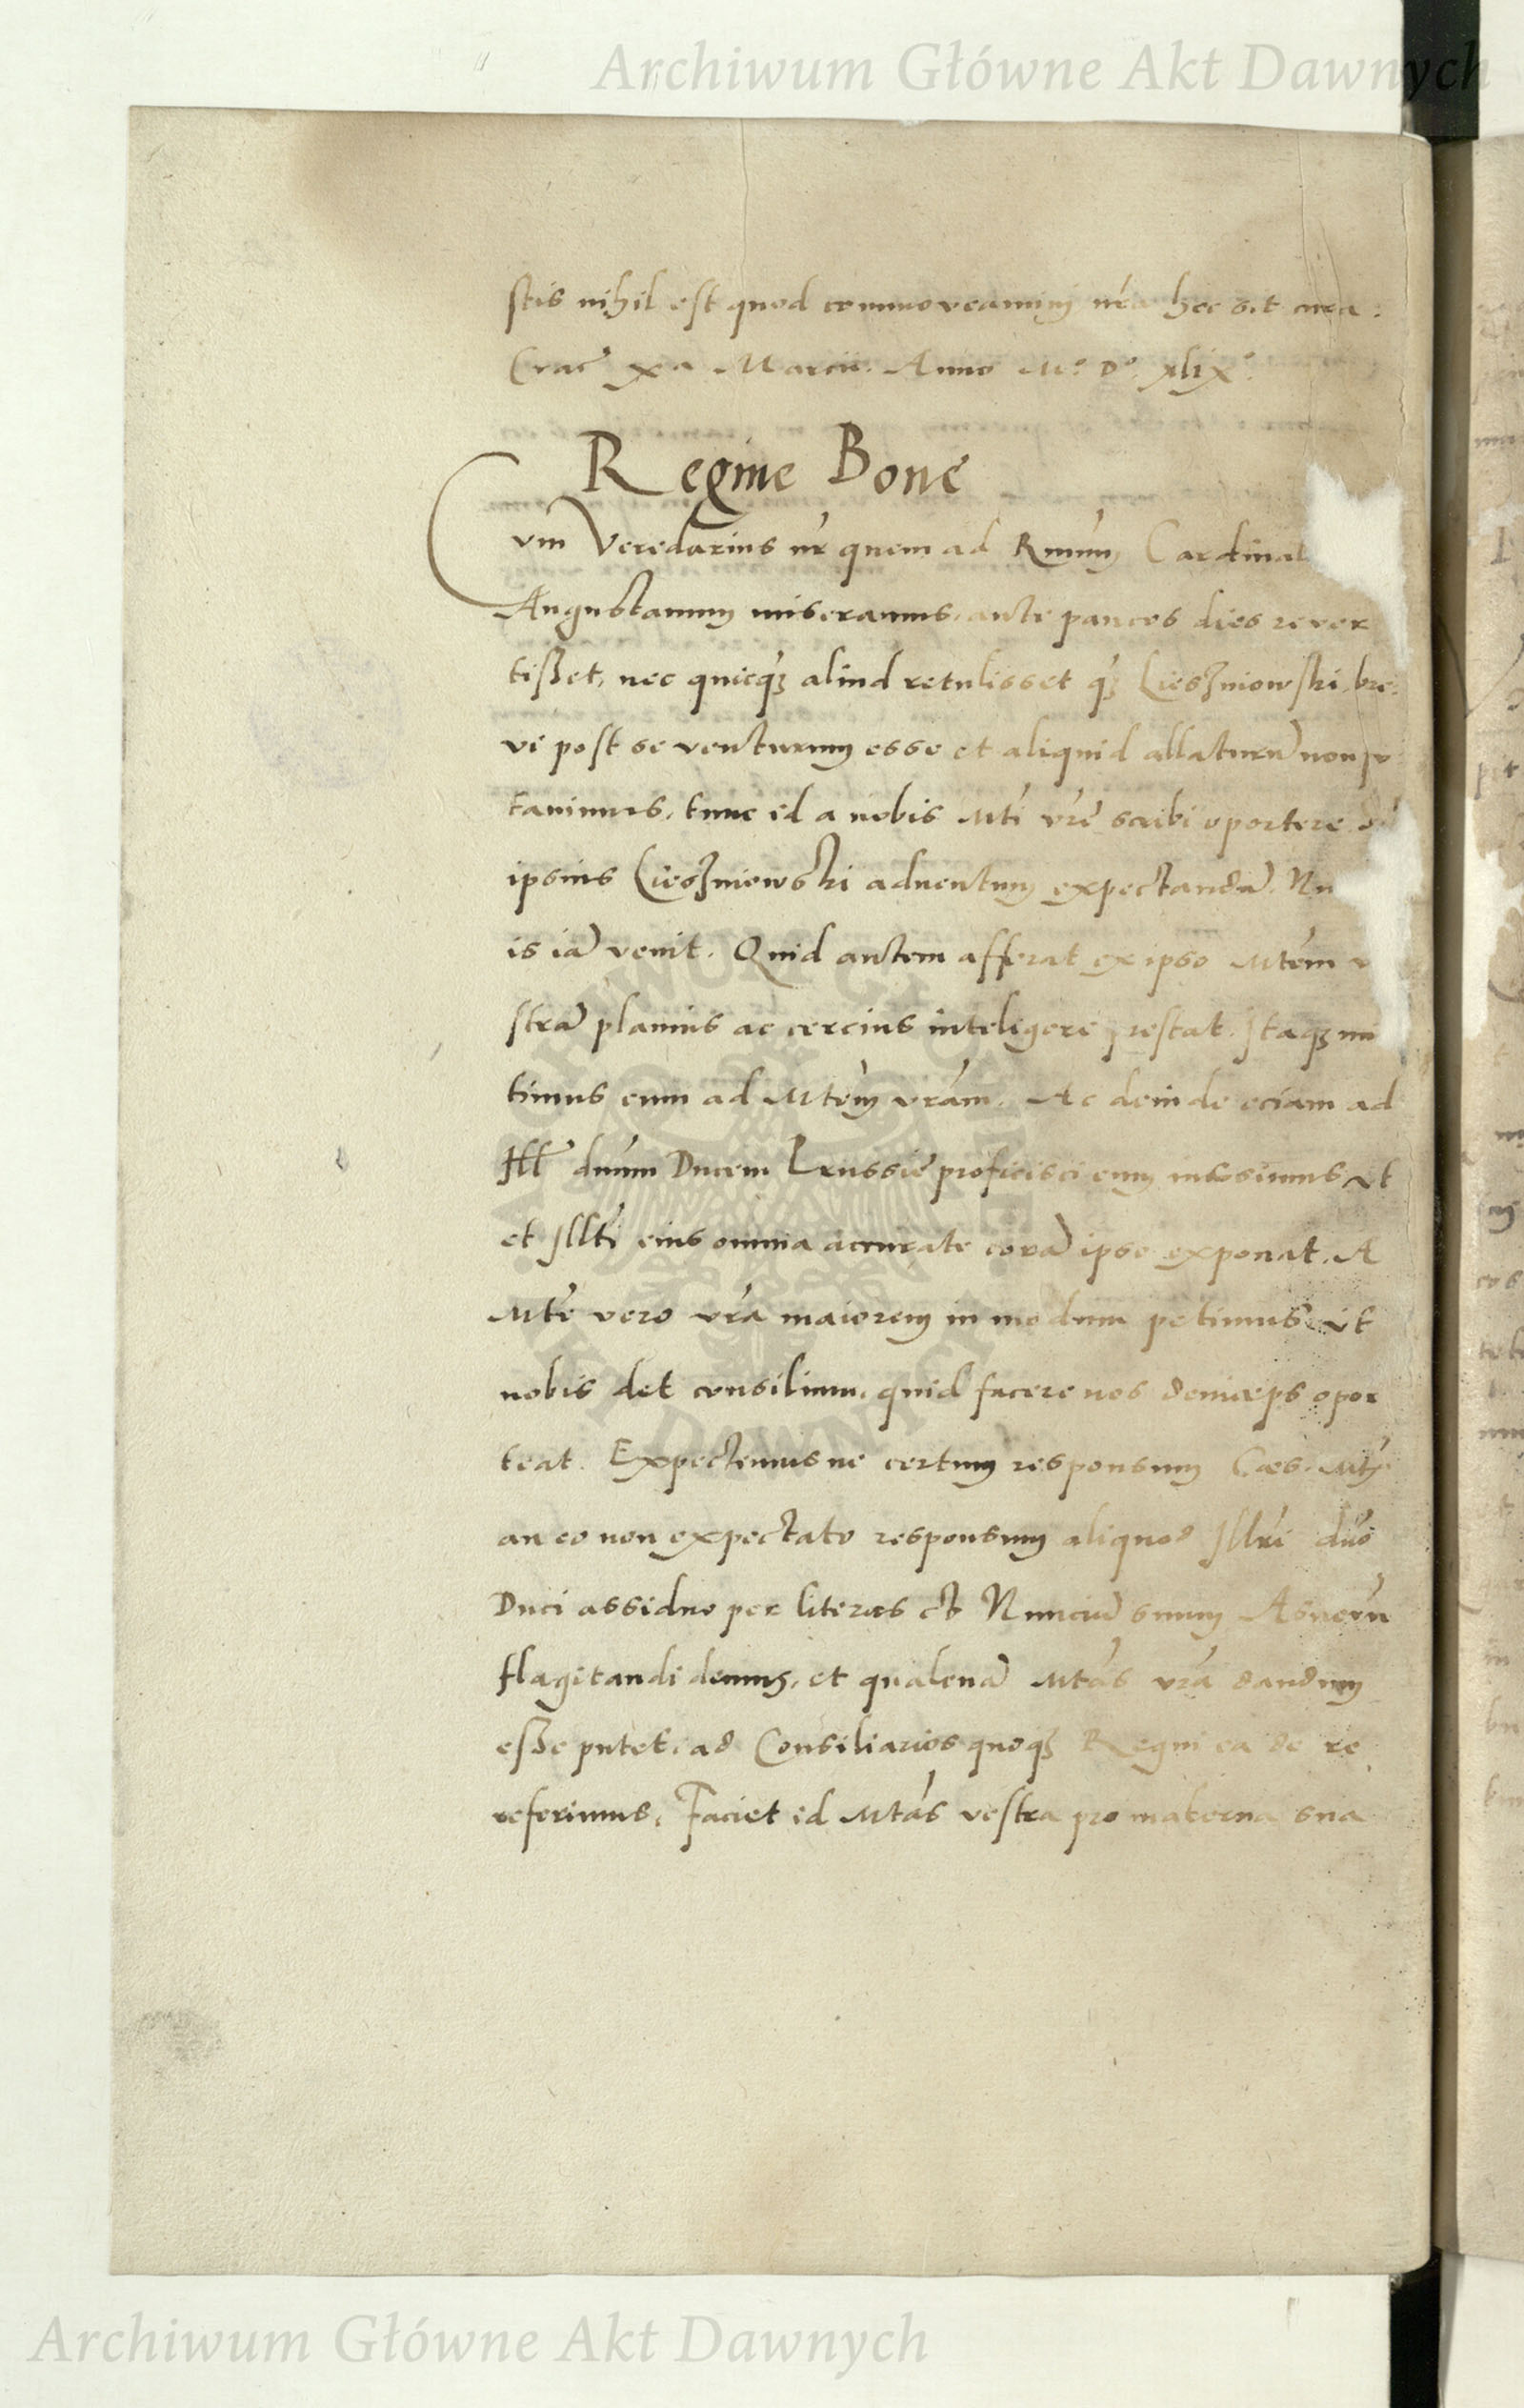 Archiwum Główne Akt Dawnych
stis nihil est quod commoveamini nr̃a hec sit cura:
Crac̃ xa Marcii. Anno Mº. Dº. xlixº.
Regine Bone
Cum Veredarius nr̃ quem ad Rmũm Cardinal
Augustanum miseramus, ante paucos dies rever
tisset, nec quicq̃ʒ aliud retulisset q̃ʒ Liesʒniowski, bre:
vi post se venturum esse et aliquid allaturũ non pu
tavimus, tunc id a nobis Mti vr̃e scribi oportere
ipsius Liesʒniowski adventum expectandũ. Nu
is iã venit. Quid autem afferat ex ipso Mtẽm v
strã planius ac cercius inteligere prestat. Itaqʒ mi
timus eum ad Mtẽm vrãm. Ac deinde eciam ad
Ill̃ dnũm Ducem Prussie proficisci eum iussimus, ut
et Illti eius omnia accurate corã ipse exponat. A
Mte vero vrã maiorem in modum petimus, ut
nobis det consilium, quid facere nos deinceps opor
teat. Expectemus ne certum responsum Caes. Mtis
an eo non expectato responsum aliquod Illri dño
Duci assiduo per literas et Nuncium suum Asverũ
flagitandi demus, et qualenã Mtas vrã dandum
esse putet, ad Consiliarios quoqʒ Regni ea de re
referimus, Faciet id Mtas vestra pro materna sua
ARCHIWUM GŁÓWNE AKT DAWNYCH
Archiwum Główne Akt Dawnych